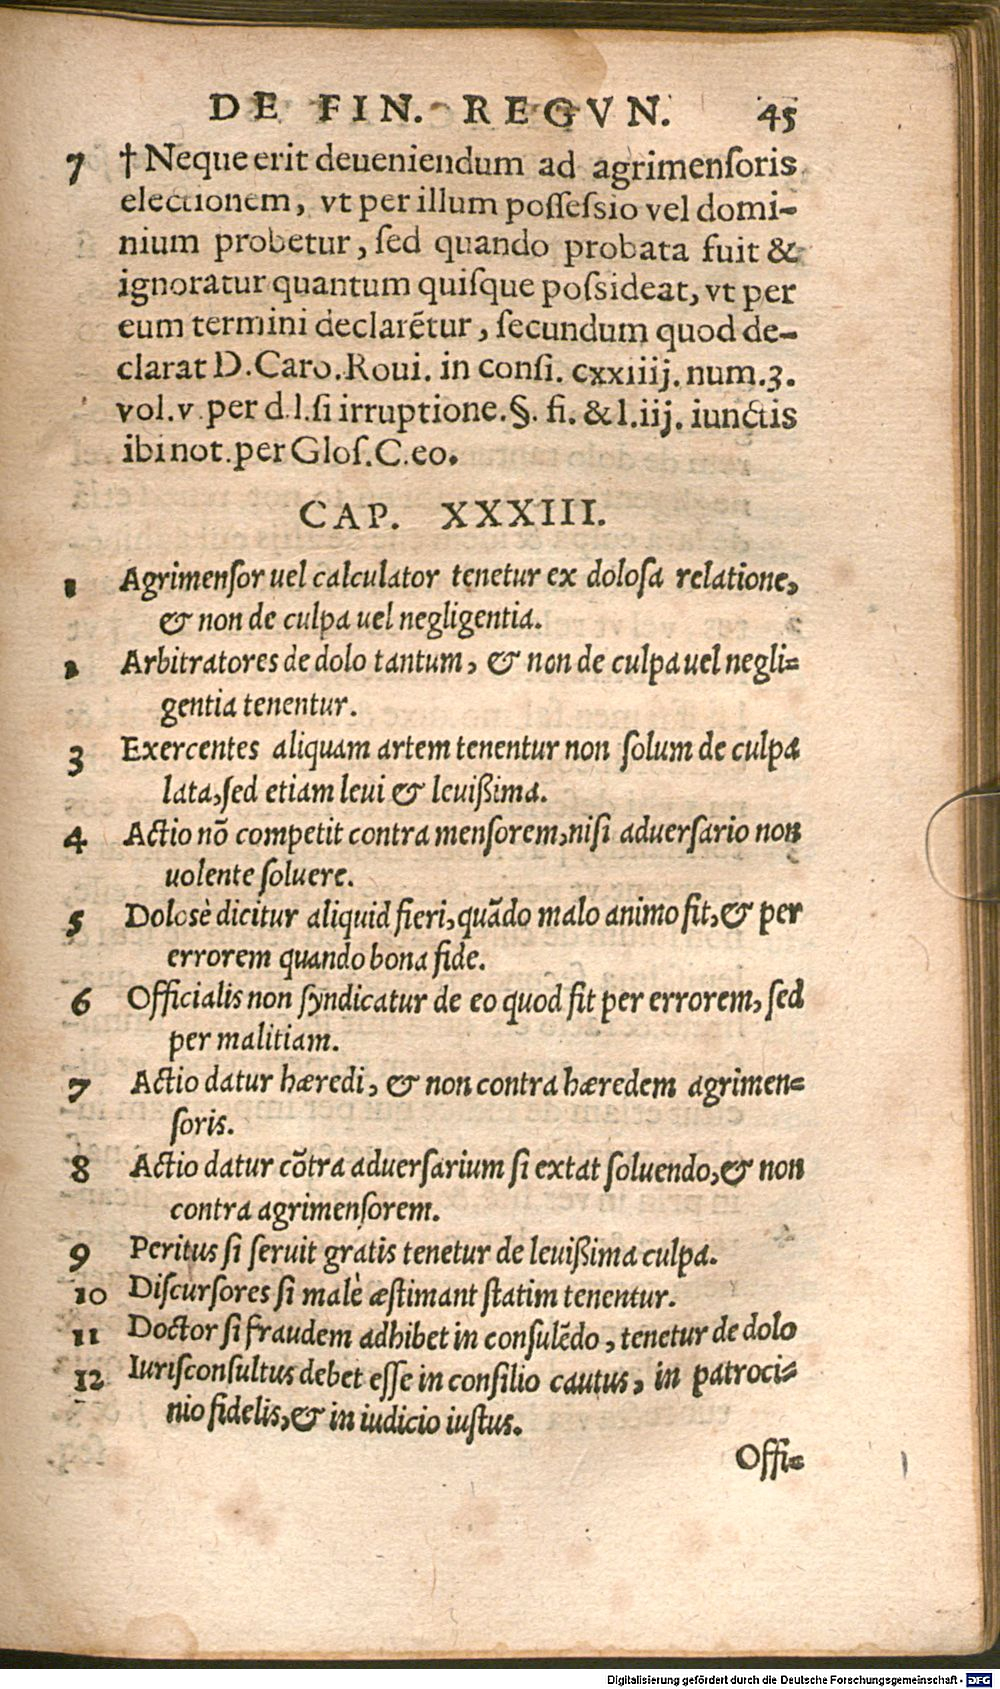 DE FIN. REGVN. 45
7 † Neque erit deueniendum ad agrimenſoris
electionem, vt per illum poſſeſsio vel domi-
nium probetur, ſed quando probata fuit &
ignoratur quantum quiſque poſsideat, vt per
eum termini declarẽtur, ſecundum quod de-
clarat D. Caro. Roui. in conſi. cxxiiij. num. 3.
vol. v per d. l. ſi irruptione. §. fi. & l. iij. iunctis
ibi not. per Gloſ. C. eo.
CAP. XXXIII.
1 Agrimenſor uel calculator tenetur ex doloſa relatione,
& non de culpa uel negligentia.
2 Arbitratores de dolo tantum, & non de culpa uel negli-
gentia tenentur.
3 Exercentes aliquam artem tenentur non ſolum de culpa
lata, ſed etiam leui & leuißima.
4 Actio nõ competit contra menſorem, niſi aduerſario non
uolente ſoluere.
5 Dolosè dicitur aliquid fieri, quãdo malo animo fit, & per
errorem quando bona fide.
6 Officialis non ſyndicatur de eo quod fit per errorem, ſed
per malitiam.
7 Actio datur hæredi, & non contra hæredem agrimen-
ſoris.
8 Actio datur cõtra aduerſarium ſi extat ſoluendo, & non
contra agrimenſorem.
9 Peritus ſi ſeruit gratis tenetur de leuißima culpa.
10 Diſcurſores ſi malè æſtimant ſtatim tenentur.
11 Doctor ſi fraudem adhibet in conſulẽdo, tenetur de dolo
12 Iuriſconſultus debet eſſe in conſilio cautus, in patroci-
nio fidelis, & in iudicio iuſtus.
Offi-
Digitalisierung gefördert durch die Deutsche Forschungsgemeinschaft - DFG